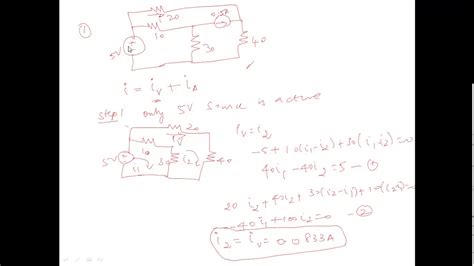 ①
i 20
10
0.5A
5V
30
40
i = iv + iA
Step1 only 5V source is active
20
iv
10
5V
i1
30
i2
40
iv = i2
-5+10(i1-i2)+30(i1-i2)=0
40i1-40i2=5 -①
20i2+40i2+30(i2-i1)+10(i2-i1)=0
-40i1+100i2=0 -②
i2=iv=0.0833A